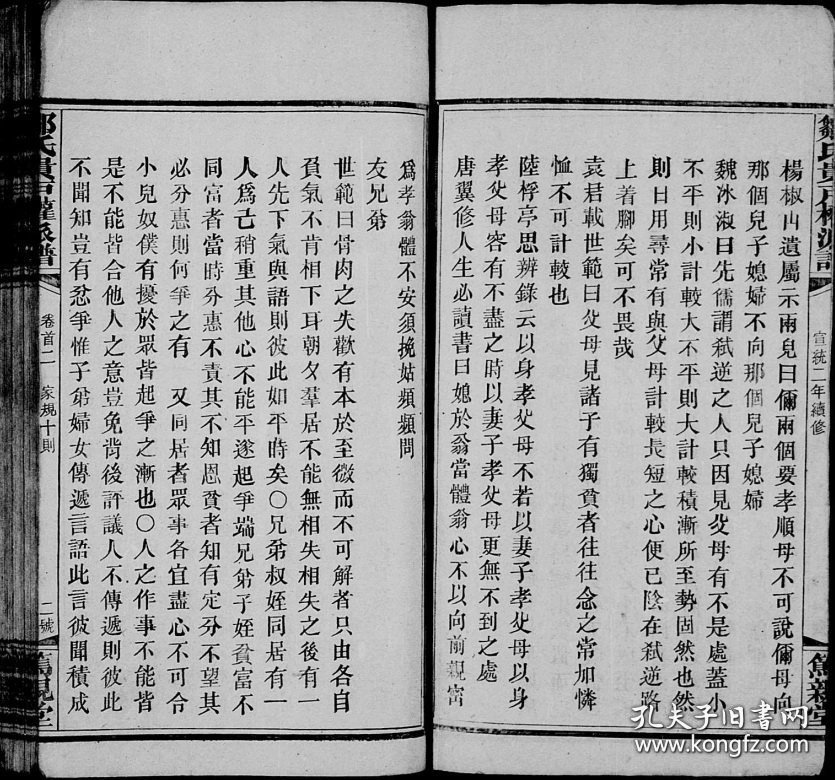 楊椒山遺屬示兩兒曰儞兩個要孝順母不可說儞母向
那個兒子媳婦不向那個兒子媳婦
魏冰淑曰先儒謂弑逆之人只因見父母有不是處蓋小
不平則小計較大不平則大計較積漸所至勢固然也然
則日用尋常有與父母計較長短之心便已陰在弑逆路
上着腳矣可不畏哉
袁君載世範曰父母見諸子有獨貧者往往念之常加憐
恤不可計較也
陸桴亭思辨錄云以身孝父母不若以妻子孝父母以身
孝父母容有不盡之時以妻子孝父母更無不到之處
唐翼修人生必讀書曰媳於翁當體翁心不以向前親密
宣統二年續修
篤親堂
爲孝翁體不安須挽姑頻頻問
友兄弟
世範曰骨肉之失歡有本於至微而不可解者只由各自
負氣不肯相下耳朝夕羣居不能無相失相失之後有一
人先下氣與語則彼此如平時矣○兄弟叔姪同居有一
人爲己稍重其他心不能平遂起爭端兄弟子姪貧富不
同富者當時分惠不責其不知恩貧者知有定分不望其
必分惠則何爭之有 又同居者眾事各宜盡心不可合
小兒奴僕有擾於眾皆起爭之漸也○人之作事不能皆
是不能皆合他人之意豈免背後評議人不傳遞則彼此
不聞知豈有忿爭惟子弟婦女傳遞言語此言彼聞積成
卷首二
家規十則
二號
篤親堂
孔夫子旧书网
www.kongfz.com